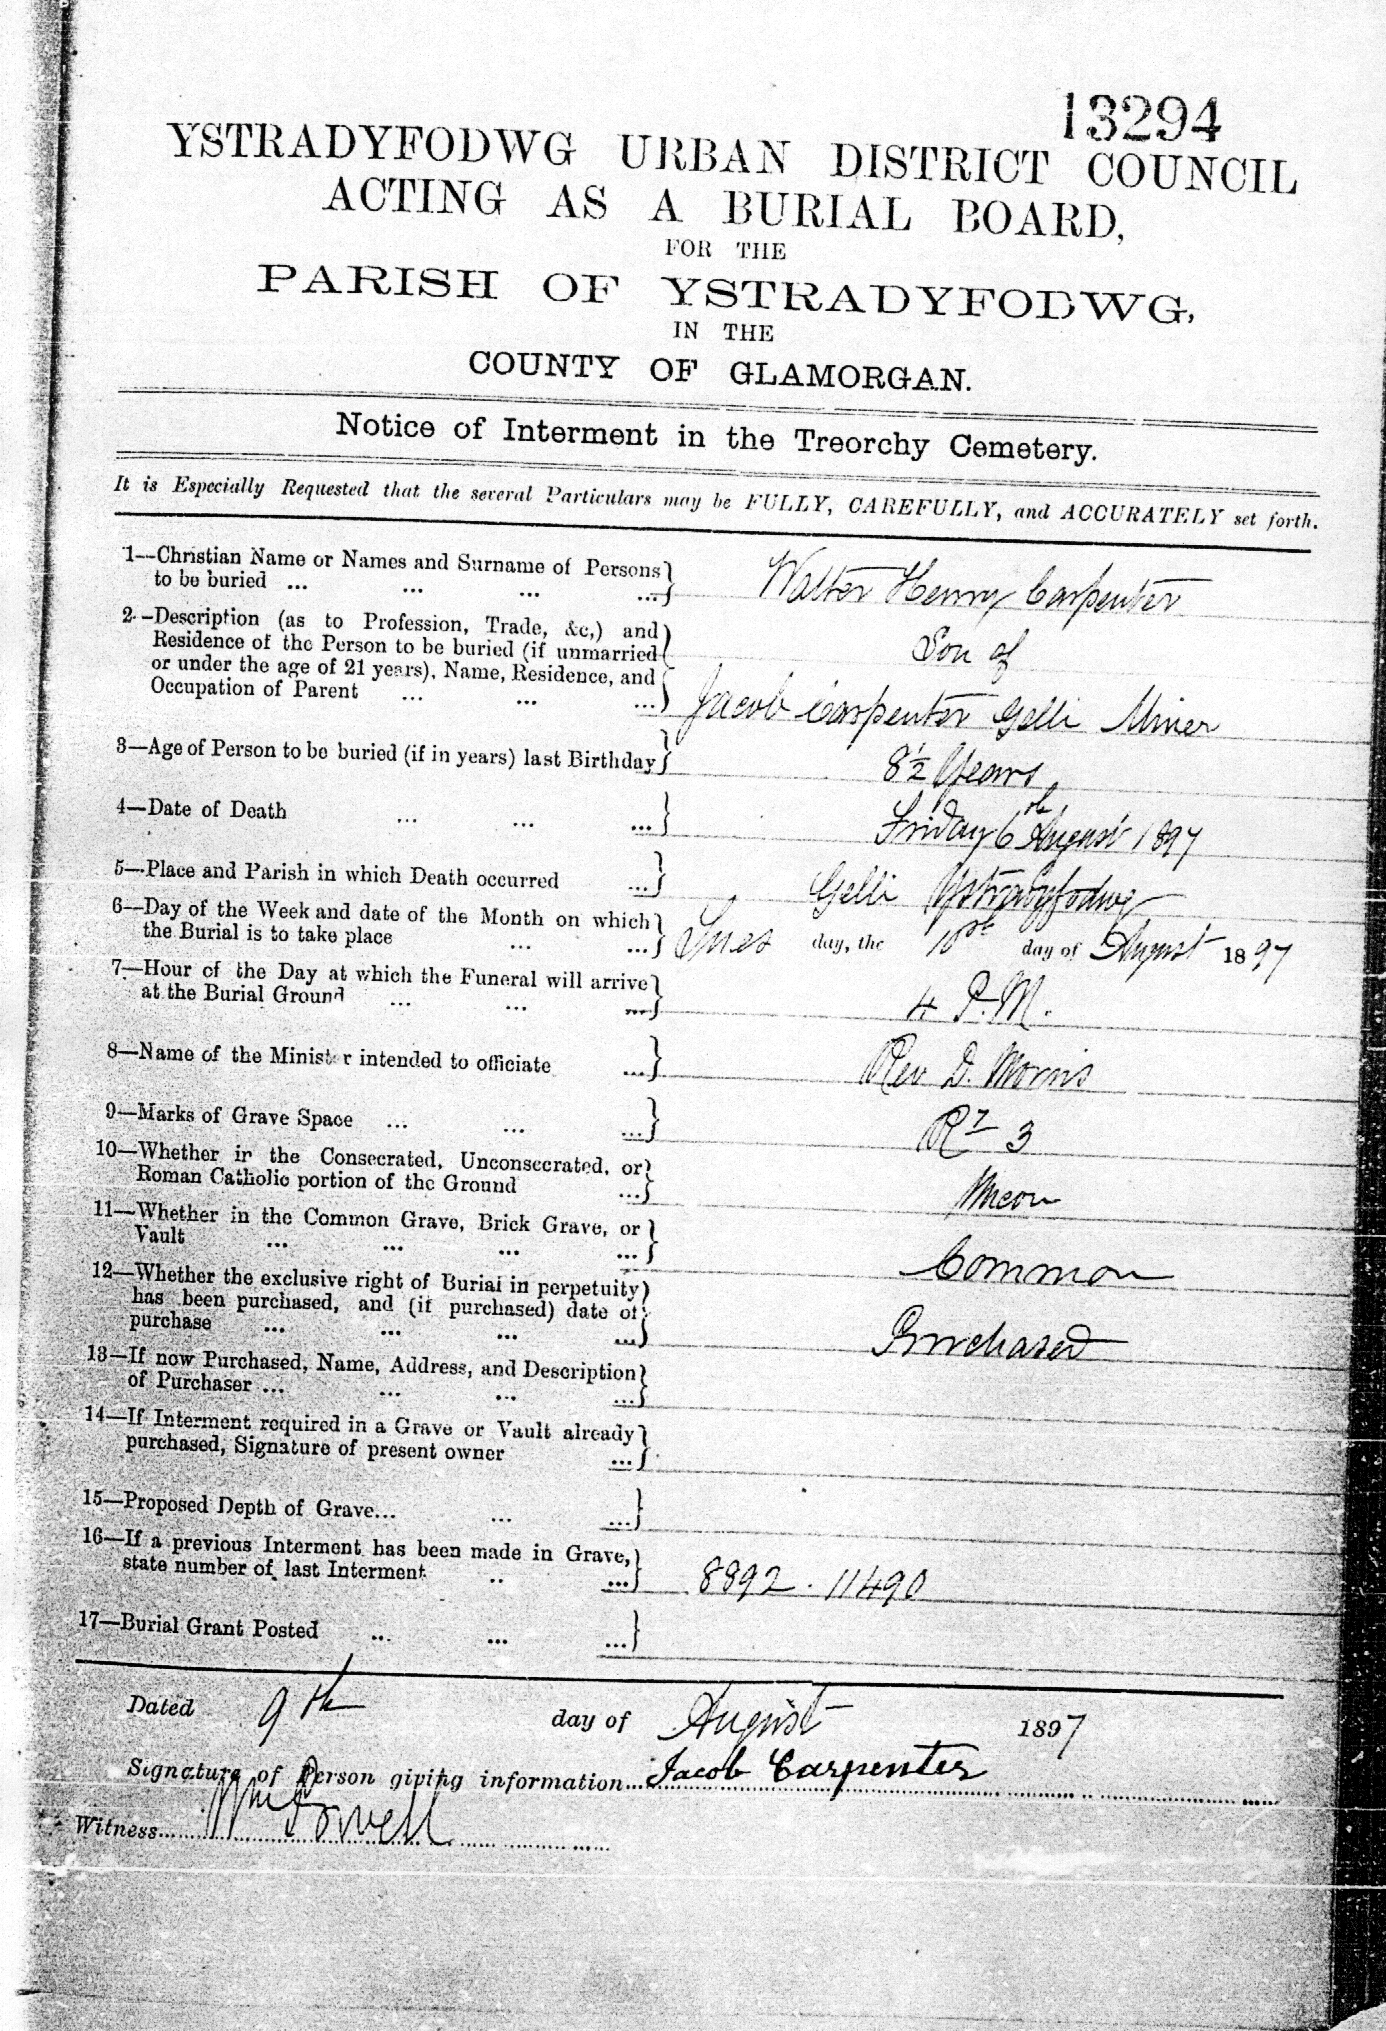 13294
YSTRADYFODWG URBAN DISTRICT COUNCIL
ACTING AS A BURIAL BOARD,
FOR THE
PARISH OF YSTRADYFODWG,
IN THE
COUNTY OF GLAMORGAN.
Notice of Interment in the Treorchy Cemetery.
It is Especially Requested that the several Particulars may be FULLY, CAREFULLY, and ACCURATELY set forth.
1—Christian Name or Names and Surname of Persons
to be buried ... ... ... ... Walter Henry Carpenter
2—Description (as to Profession, Trade, &c,) and
Residence of the Person to be buried (if unmarried Son of
or under the age of 21 years), Name, Residence, and
Occupation of Parent ... ... ... Jacob Carpenter Gelli Miner
3—Age of Person to be buried (if in years) last Birthday 8½ Years
4—Date of Death ... ... ... Friday 6th August 1897
5—Place and Parish in which Death occurred ... Gelli Ystradyfodwg
6—Day of the Week and date of the Month on which
the Burial is to take place ... ... Tues day, the 10th day of August 1897
7—Hour of the Day at which the Funeral will arrive
at the Burial Ground ... ... ... 4 P.M.
8—Name of the Minister intended to officiate ... Rev D. Morris
9—Marks of Grave Space ... ... ... R7 3
10—Whether in the Consecrated, Unconsecrated, or
Roman Catholic portion of the Ground ... Uncon
11—Whether in the Common Grave, Brick Grave, or
Vault ... ... ... ... Common
12—Whether the exclusive right of Burial in perpetuity
has been purchased, and (if purchased) date of
purchase ... ... ... ... Purchased
13—If now Purchased, Name, Address, and Description
of Purchaser ... ... ... ...
14—If Interment required in a Grave or Vault already
purchased, Signature of present owner ...
15—Proposed Depth of Grave... ... ...
16—If a previous Interment has been made in Grave,
state number of last Interment .. ... 8892 . 11490
17—Burial Grant Posted ... ... ...
Dated 9th day of August 1897
Signature of Person giving information... Jacob Carpenter
Witness... Wm Powell